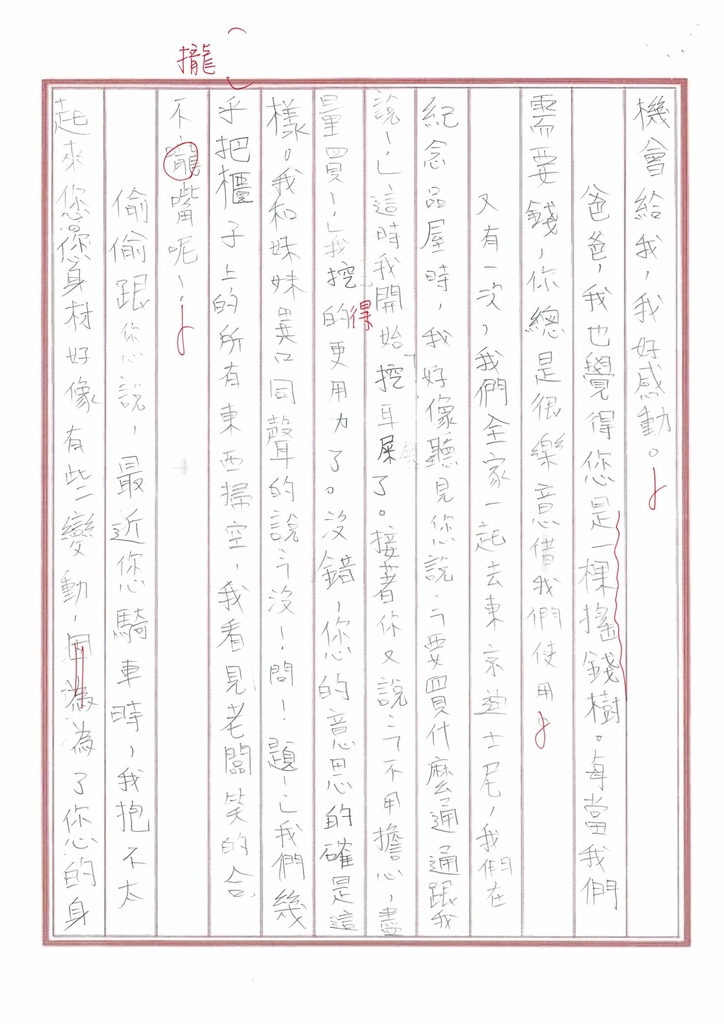 機會給我，我好感動。
爸爸，我也覺得您是一棵搖錢樹。每當我們
需要錢，你總是很樂意借我們使用
又有一次，我們全家一起去東京迪士尼，我們在
紀念品屋時，我好像聽見您說：「要買什麼通通跟我
說！」這時我開始挖耳屎了。接著你又說：「不用擔心，盡
量買！」我挖的更用力了。沒錯，您的意思的確是這
得
樣。我和妹妹異口同聲的說：「沒！問！題！」我們幾
乎把櫃子上的所有東西掃空，我看見老闆笑的合
不嘴呢！
攏
偷偷跟您說，最近您騎車時，我抱不太
起來您，您身材好像有些變動，為了您的身